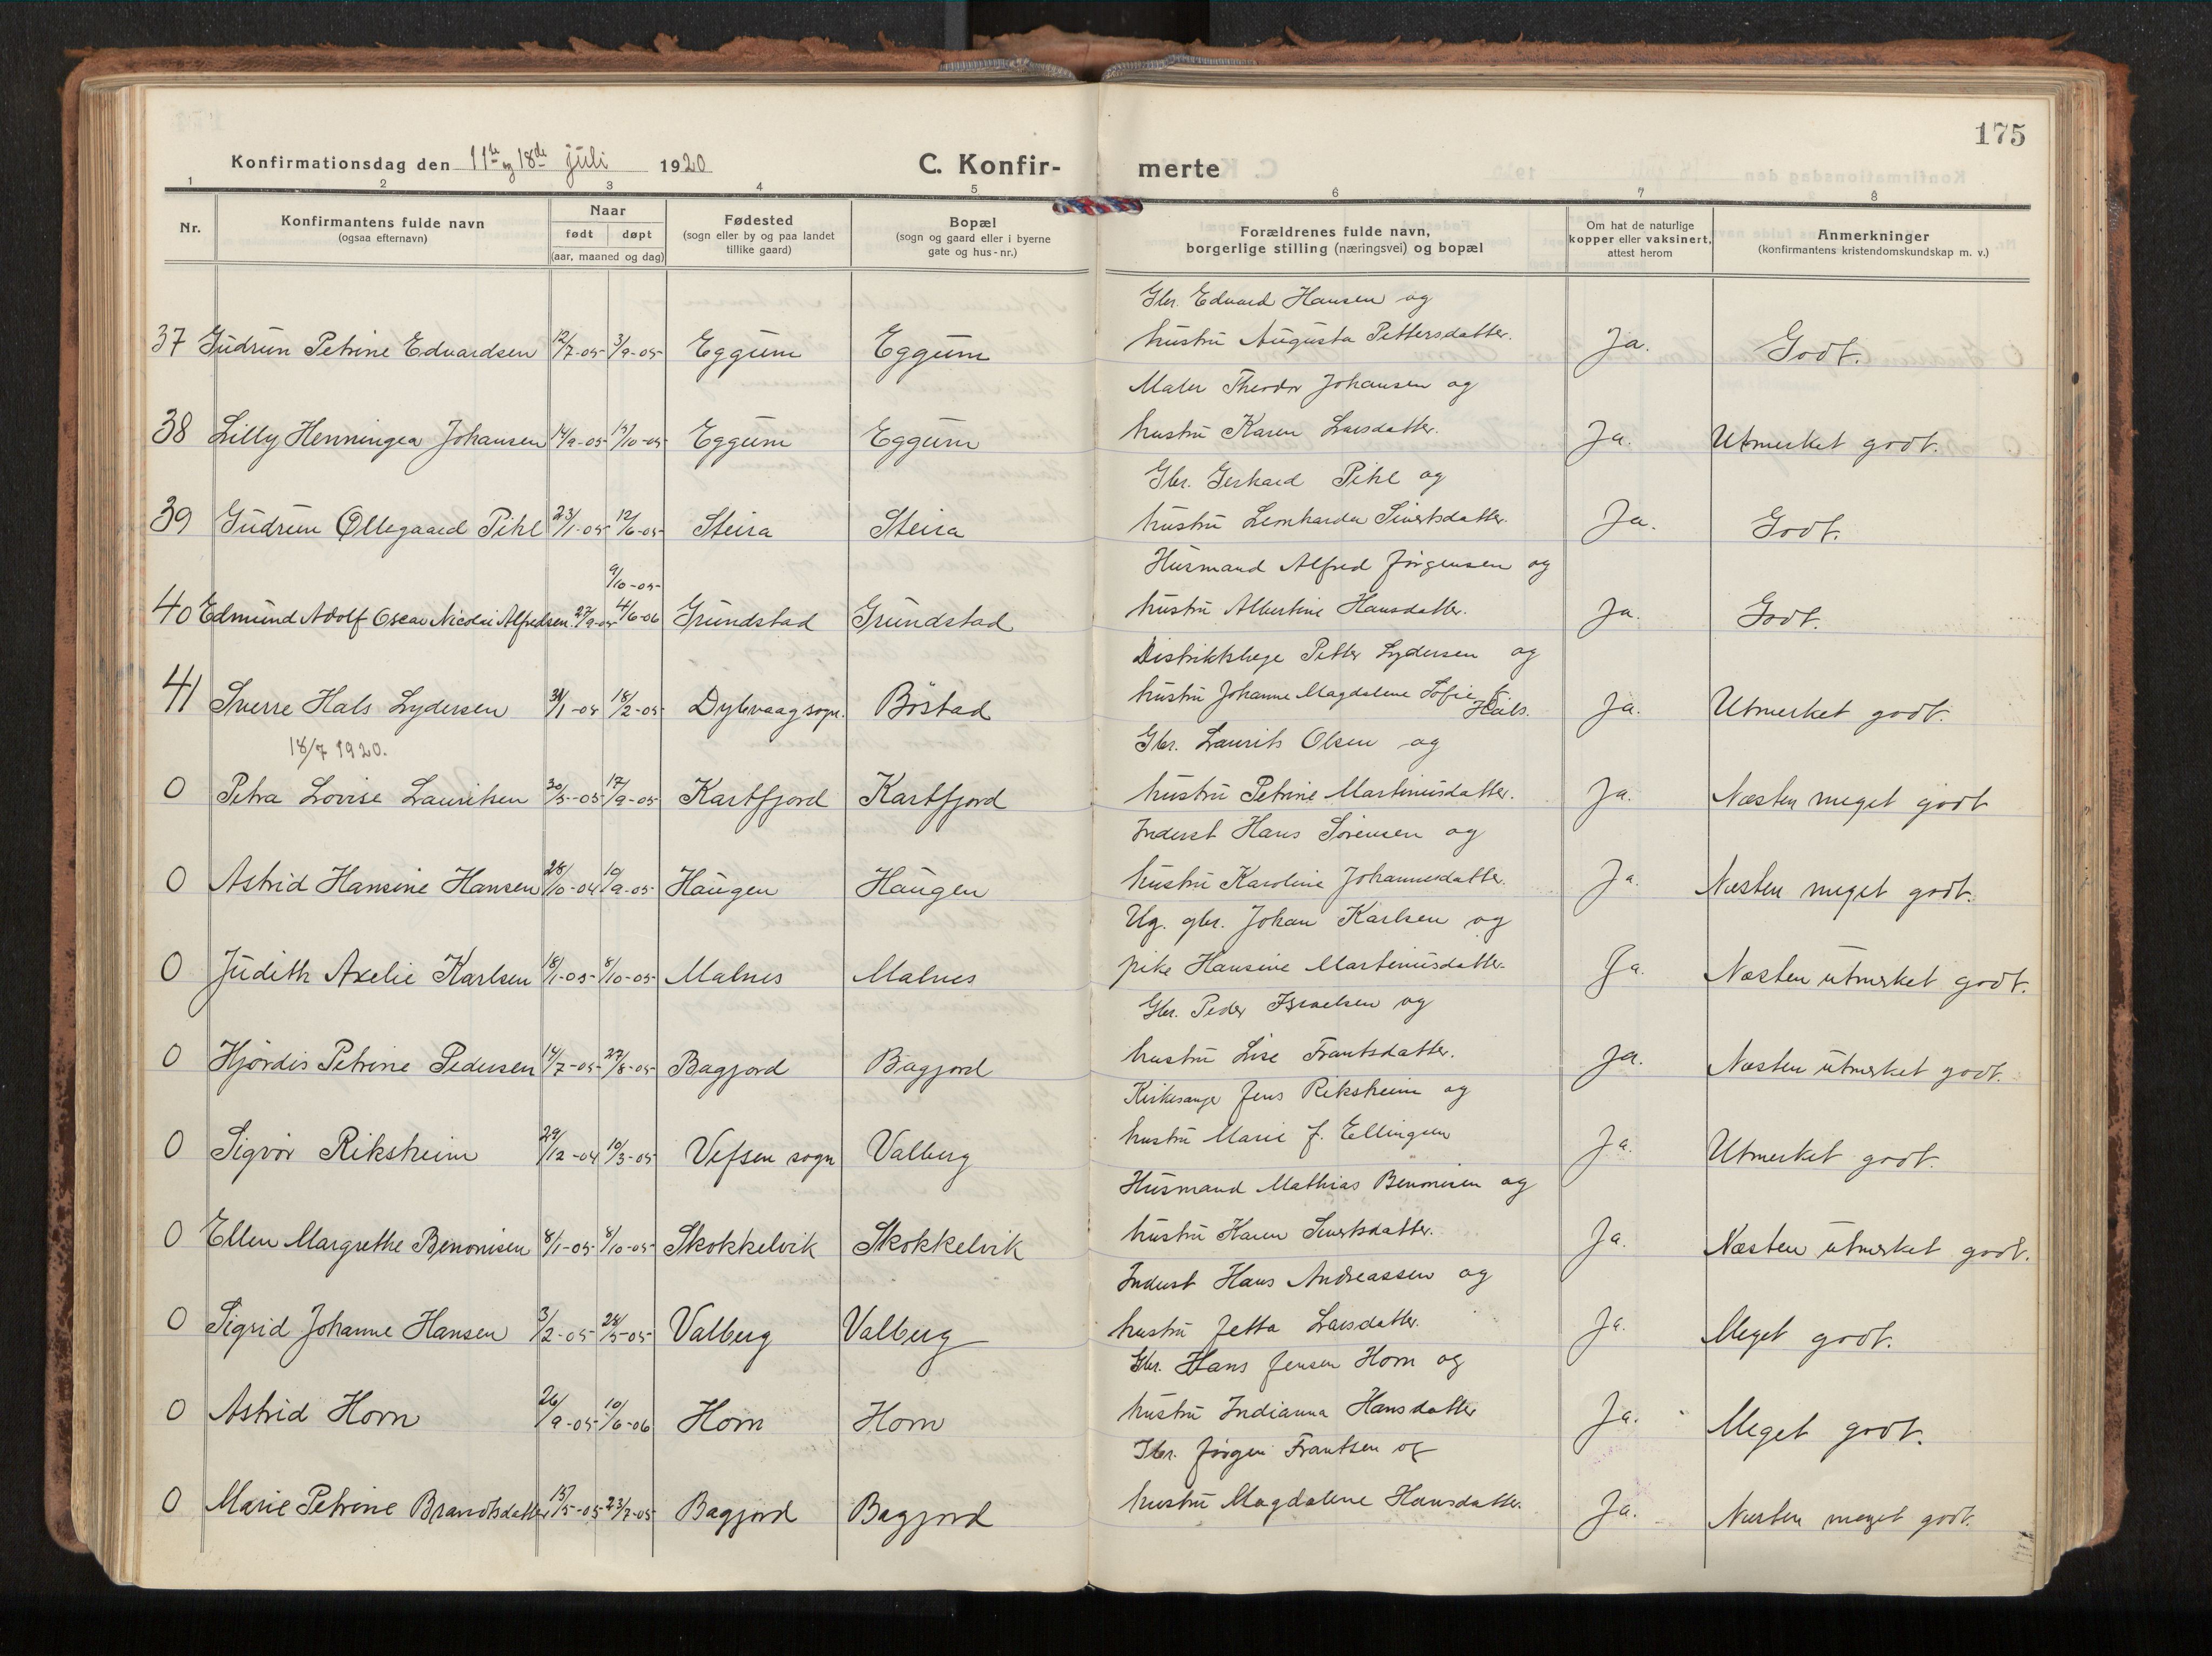 175
Konfirmationsdag den 11te og 18de juli 1920 C. Konfir- merte
1 2 3 4 5 6 7 8
Nr. Konfirmantens fulde navn (ogsaa efternavn) Naar født døpt (aar, maaned og dag) Fødested (sogn eller by og paa landet tillike gaard) Bopæl (sogn og gaard eller i byerne gate og hus-nr.) Forældrenes fulde navn, borgerlige stilling (næringsvei) og bopæl Om hat de naturlige kopper eller vaksinert, attest herom Anmerkninger (konfirmantens kristendomskundskap m. v.)
Gbr. Edvard Hansen og
37 Gudrun Petrine Edvardsen 12/7-05 3/9-05 Eggum Eggum hustru Augusta Pettersdatter. Ja. Godt.
Maler Theodor Johansen og
38 Lilly Henningea Johansen 14/9-05 15/10-05 Eggum Eggum hustru Karen Larsdatter. Ja. Utmerket godt.
Gbr. Gerhard Pihl og
39 Gudrun Øllegaard Pihl 23/1-05 12/6-05 Steira Steira hustru Leonharda Sivertsdatter. Ja. Godt.
9/10-05 Husmand Alfred Jørgensen og
40 Edmund Adolf Oscar Nicolai Alfredsen 27/9-05 4/6-06 Grundstad Grundstad hustru Albertine Hansdatter. Ja. Godt.
Distriktslege Petter Lydersen og
41 Sverre Hals Lydersen 31/1-05 18/2-05 Dybvaag sogn. Bøstad hustru Johanne Magdalene Sofie f. Hals. Ja. Utmerket godt.
18/7 1920. Gbr. Laurits Olsen og
0 Petra Lovise Lauritsen 30/5-05 17/9-05 Kartfjord Kartfjord hustru Petrine Martinusdatter. Ja. Næsten meget godt
Inderst Hans Sørensen og
0 Astrid Hansine Hansen 28/10-04 10/9-05 Haugen Haugen hustru Karoline Johannesdatter. Ja. Næsten meget godt.
Ug. gbr. Johan Karlsen og
0 Judith Axelie Karlsen 18/1-05 8/10-05 Malnes Malnes pike Hansine Martinusdatter. Ja. Næsten utmerket godt.
Gbr. Peder Israelsen og
0 Hjördis Petrine Pedersen 14/7-05 27/8-05 Bagjord Bagjord hustru Lise Frantsdatter. Ja. Næsten utmerket godt.
Kirkesanger Jens Riksheim og
0 Sigvor Riksheim 29/12-04 10/3-05 Vefsen sogn Valberg hustru Marie f. Ellingsen Ja. Utmerket godt.
Husmand Mathias Benonisen og
0 Ellen Margrethe Benonisen 8/1-05 8/10-05 Skokkelvik Skokkelvik hustru Karen Sivertsdatter. Ja. Næsten utmerket godt.
Inderst Hans Andreassen og
0 Sigrid Johanne Hansen 3/2-05 28/5-05 Valberg Valberg hustru Jetta Larsdatter. Ja. Meget godt.
Gbr. Hans Jensen Horn og
0 Astrid Horn 26/9-05 10/6-06 Horn Horn hustru Indianna Hansdatter Ja. Meget godt.
Gbr. Jørgen Frantsen og
0 Marie Petrine Brandtsdatter 15/5-05 23/7-05 Bagjord Bagjord hustru Magdalene Hansdatter. Ja. Næsten meget godt.